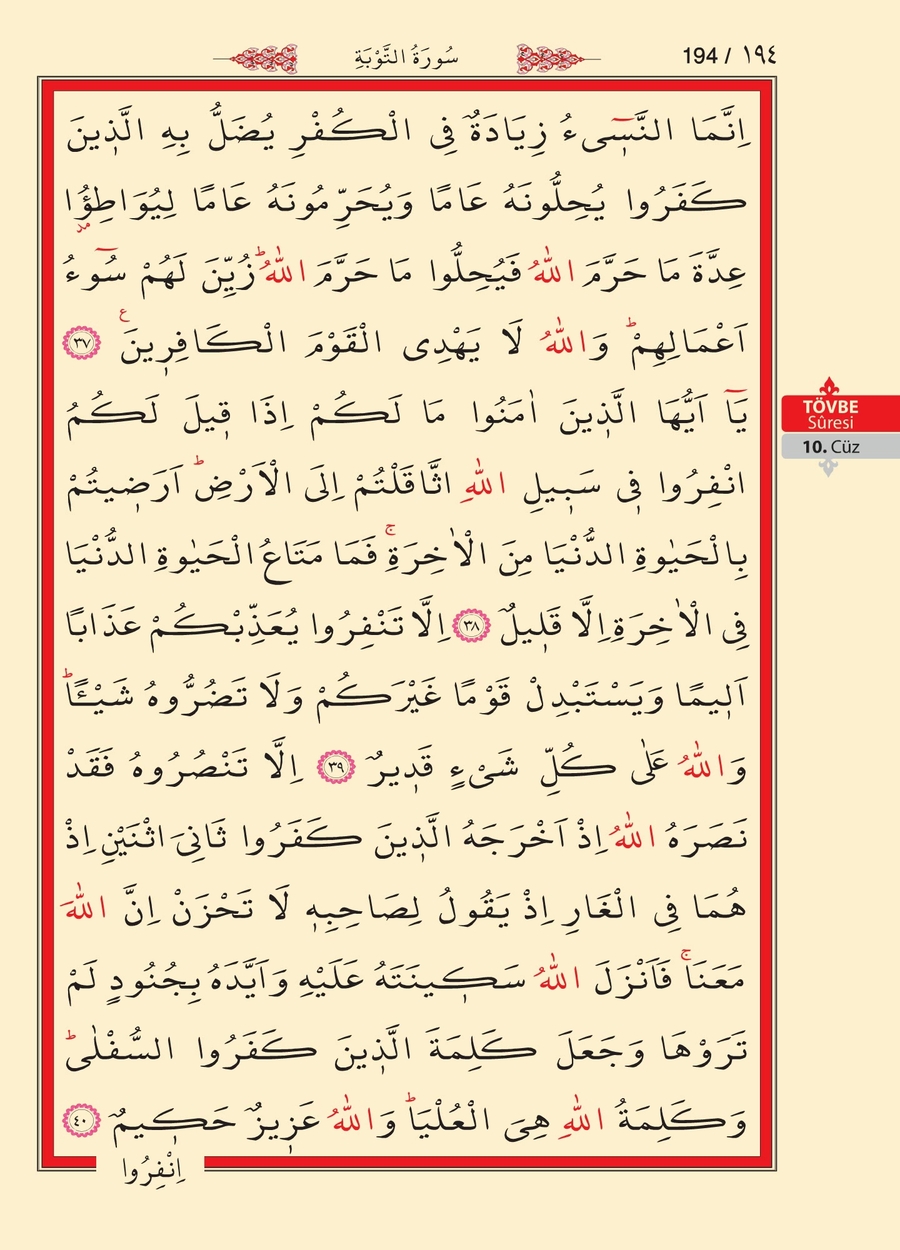 سُورَةُ التَّوْبَةِ
194 / ١٩٤
اِنَّمَا النَّسٖٓیءُ زِيَادَةٌ فِی الْكُفْرِ يُضَلُّ بِهِ الَّذٖينَ
كَفَرُوا يُحِلُّونَهُ عَامًا وَيُحَرِّمُونَهُ عَامًا لِيُوَاطِؤُ۫ا
مد
عِدَّةَ مَا حَرَّمَ اللّٰهُ فَيُحِلُّوا مَا حَرَّمَ اللّٰهُؕ زُيِّنَ لَهُمْ سُٓوءُ
اَعْمَالِهِمْؕ وَاللّٰهُ لَا يَهْدِی الْقَوْمَ الْكَافِرٖينَ ع ٣٧
يَٓا اَيُّهَا الَّذٖينَ اٰمَنُوا مَا لَكُمْ اِذَا قٖيلَ لَكُمُ
انْفِرُوا فٖی سَبٖيلِ اللّٰهِ اثَّاقَلْتُمْ اِلَی الْاَرْضِؕ اَرَضٖيتُمْ
بِالْحَيٰوةِ الدُّنْيَا مِنَ الْاٰخِرَةِۚ فَمَا مَتَاعُ الْحَيٰوةِ الدُّنْيَا
فِی الْاٰخِرَةِ اِلَّا قَلٖيلٌ ٣٨ اِلَّا تَنْفِرُوا يُعَذِّبْكُمْ عَذَابًا
اَلٖيمًا وَيَسْتَبْدِلْ قَوْمًا غَيْرَكُمْ وَلَا تَضُرُّوهُ شَيْـًٔاؕ
وَاللّٰهُ عَلٰی كُلِّ شَیْءٍ قَدٖيرٌ ٣٩ اِلَّا تَنْصُرُوهُ فَقَدْ
نَصَرَهُ اللّٰهُ اِذْ اَخْرَجَهُ الَّذٖينَ كَفَرُوا ثَانِیَ اثْنَيْنِ اِذْ
هُمَا فِی الْغَارِ اِذْ يَقُولُ لِصَاحِبِهٖ لَا تَحْزَنْ اِنَّ اللّٰهَ
مَعَنَاۚ فَاَنْزَلَ اللّٰهُ سَكٖينَتَهُ عَلَيْهِ وَاَيَّدَهُ بِجُنُودٍ لَمْ
تَرَوْهَا وَجَعَلَ كَلِمَةَ الَّذٖينَ كَفَرُوا السُّفْلٰیؕ
وَكَلِمَةُ اللّٰهِ هِیَ الْعُلْيَاؕ وَاللّٰهُ عَزٖيزٌ حَكٖيمٌ ٤٠
اِنْفِرُوا
TÖVBE
Sûresi
10. Cüz